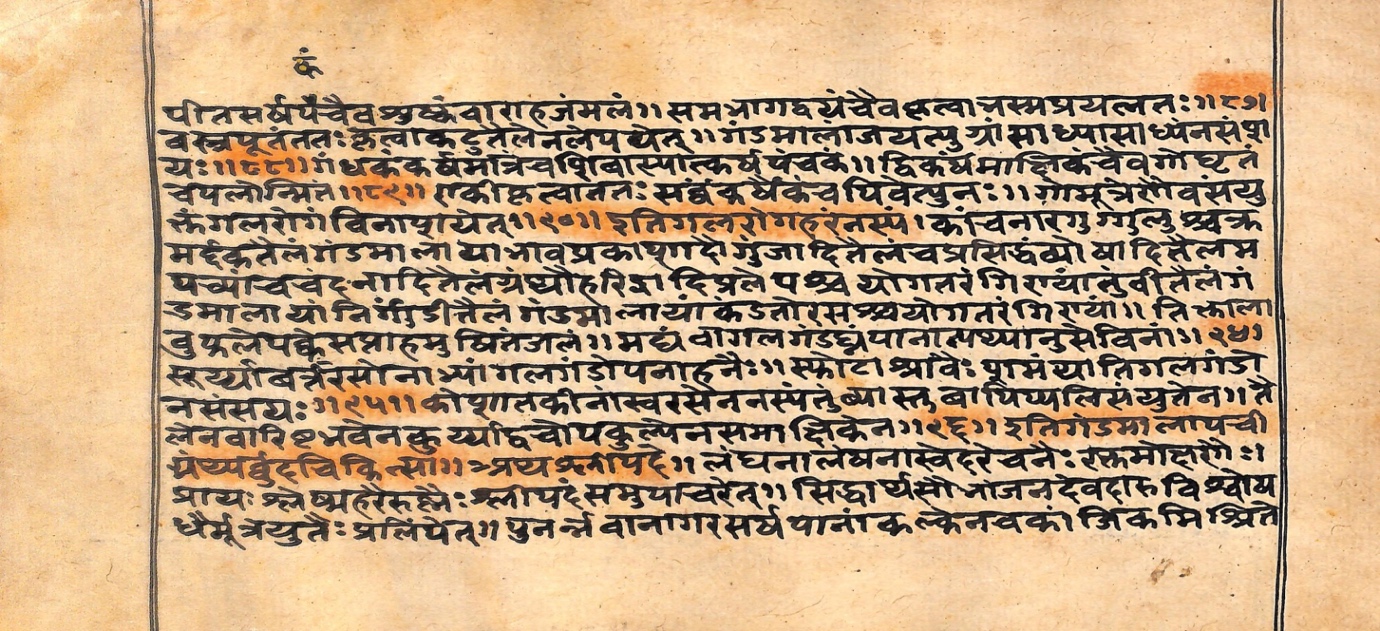 कं
पीतसर्षपंचैव शुष्कं वाराहजंमलं॥ समभागद्वयंचैव कृत्वाभस्मप्रयत्नतः॥८७॥
वस्त्रपूतंततः कृत्वाकटुतैलेनलेपयेत्॥ गंडमालाजयत्युग्रांसाध्यासाध्यंनसंशा
यः॥८८॥ गंधककर्षमात्रंचशिवास्यात्कर्षपंचकं॥ द्विकर्षमाक्षिकंचैवगोघृतं
चपलोन्मितं॥८९॥ एकीकृत्वाततः सर्वंकर्षैकंचपिवेत्पुनः॥ गोमूत्रेणैवसंयु
क्तंगलरोगंविनाशयेत्॥९०॥ इतिगलरोगहरंनस्यं। कांचनारगुग्गुलुश्चक्र
मर्द्दकतैलंगंडमालायाभावप्रकाशादौ गुंजादितैलंचप्रसिद्धंव्योषादितैलम
पच्यांचचंदनादितैलंग्रंथ्यौहरिद्रादिप्रलेपश्च योगतरंगिण्यांतुंवीतैलंगं
डमालायांनिर्गुंडीतैलं गंडमालायांकंडनोरसश्चयोगतरंगिण्यां॥ तिक्तला
वुफलेपक्केसप्ताहमुषितंजलं॥ मद्यंवागलगंडघ्नंपानात्पथ्यानुसेविनां॥९४॥
सूर्य्यावर्त्तरसोनाभ्यांगलगंडोपनाहनैः॥ स्फोटाश्रावैः शामंयातिगलगंडो
नसंसयः॥९५॥ कोशातकीनांस्वरसेननस्यंतुंव्यास्तुवापिप्पलिसंयुतेन॥ तै
लेनवारिष्टभवेनकुर्य्याद्वचोपकुल्येनसमाक्षिकेन॥९६॥ इतिगंडमालापची
ग्रंथ्यर्वुदचिकित्सा॥ अथश्लीपदे॥ लंघनालेपनास्वेदरेचनैः रक्तमोक्षणैः॥
प्रायः श्लेष्महरैरुक्षैः श्लीपदंसमुपाचरेत्॥ सिद्धार्थसौभांजनदेवदारुविश्वौष
धैर्मूत्रयुतैः प्रलिंपेत्॥ पुनर्न्नवानागरसर्षपानांकल्केनचकांजिकमिश्रिते